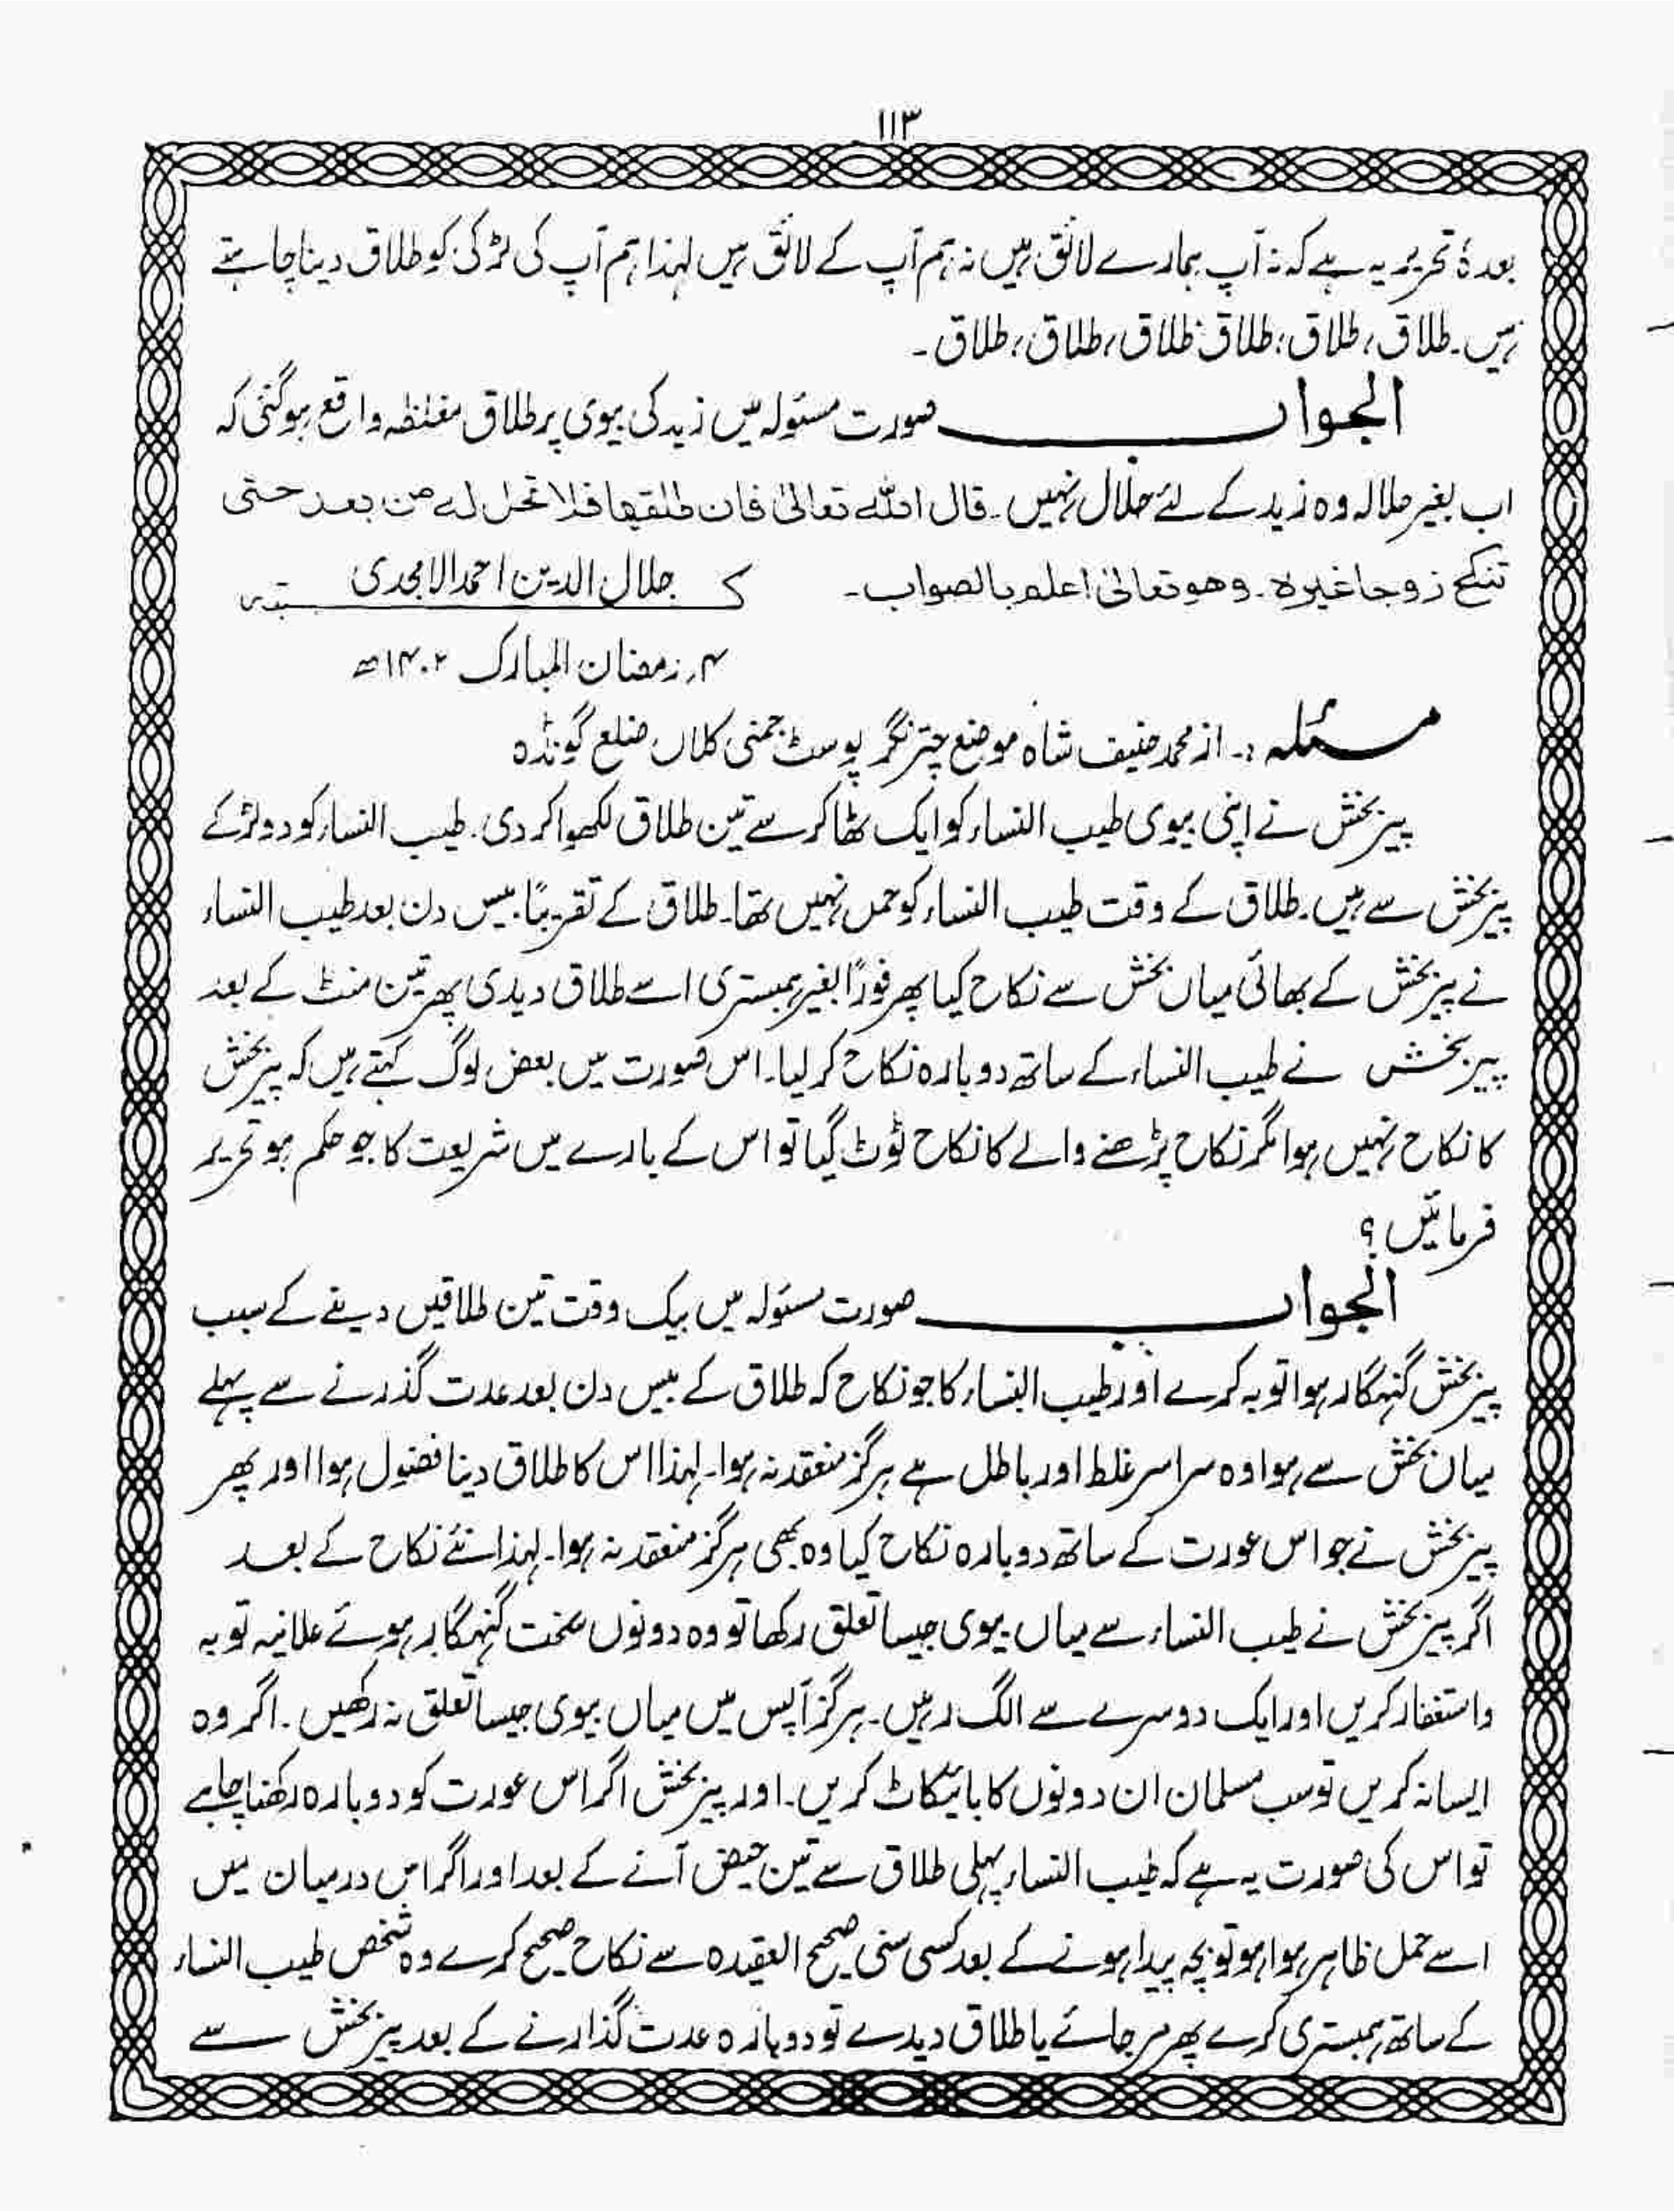 ۱۱۳
بعدۂ تحریر یہ ہے کہ نہ آپ ہمارے لائق ہیں نہ ہم آپ کے لائق ہیں لہذا ہم آپ کی لڑکی کو طلاق دینا چاہتے
ہیں۔ طلاق، طلاق، طلاق طلاق، طلاق، طلاق۔
الجواب صورت مسئولہ میں زید کی بیوی پر طلاق مغلظہ واقع ہوگئی کہ
اب بغیر حلالہ وہ زید کے لئے حلال نہیں۔ قال اللہ تعالیٰ فان طلقہا فلا تحل لہ من بعد حتی
تنکح زوجا غیرہ۔ وھو تعالیٰ اعلم بالصواب۔ کتبہ جلال الدین احمد الامجدی
۴؍ رمضان المبارک ۱۴۰۲ھ
مسئلہ :۔ از محمد حنیف شاہ موضع چترنگر پوسٹ جمنی کلاں ضلع گونڈہ
پیر بخش نے اپنی بیوی طیب النساء کو ایک ٹھاکر سے تین طلاق لکھوا کر دی۔ طیب النساء کو دو لڑکے
پیر بخش سے ہیں۔ طلاق کے وقت طیب النساء کو حمل نہیں تھا۔ طلاق کے تقریباً بیس دن بعد طیب النساء
نے پیر بخش کے بھائی میاں بخش سے نکاح کیا پھر فوراً بغیر ہمبستری اسے طلاق دیدی پھر تین منٹ کے بعد
پیر بخش نے طیب النساء کے ساتھ دوبارہ نکاح کر لیا۔ اس صورت میں بعض لوگ کہتے ہیں کہ پیر بخش
کا نکاح نہیں ہوا مگر نکاح پڑھنے والے کا نکاح ٹوٹ گیا تو اس کے بارے میں شریعت کا جو حکم ہو تحریر
فرمائیں؟
الجواب صورت مسئولہ میں بیک وقت تین طلاقیں دینے کے سبب
پیر بخش گنہگار ہوا توبہ کرے اور طیب النساء کا جو نکاح کہ طلاق کے بیس دن بعد عدت گذرنے سے پہلے
میاں بخش سے ہوا وہ سراسر غلط اور باطل ہے ہرگز منعقد نہ ہوا۔ لہذا اس کا طلاق دینا فضول ہوا اور پھر
پیر بخش نے جو اس عورت کے ساتھ دوبارہ نکاح کیا وہ بھی ہرگز منعقد نہ ہوا۔ لہذا نئے نکاح کے بعد
اگر پیر بخش نے طیب النساء سے میاں بیوی جیسا تعلق رکھا تو وہ دونوں سخت گنہگار ہوئے علانیہ توبہ
واستغفار کریں اور ایک دوسرے سے الگ رہیں۔ ہرگز آپس میں میاں بیوی جیسا تعلق نہ رکھیں۔ اگر وہ
ایسا نہ کریں تو سب مسلمان ان دونوں کا بائیکاٹ کریں۔ اور پیر بخش اگر اس عورت کو دوبارہ رکھنا چاہے
تو اس کی صورت یہ ہے کہ طیب النساء پہلی طلاق سے تین حیض آنے کے بعد اور اگر اس درمیان میں
اسے حمل ظاہر ہوا ہو تو بچہ پیدا ہونے کے بعد کسی سنی صحیح العقیدہ سے نکاح صحیح کرے وہ شخص طیب النساء
کے ساتھ ہمبستری کرے پھر مر جائے یا طلاق دیدے تو دوبارہ عدت گذارنے کے بعد پیر بخش سے